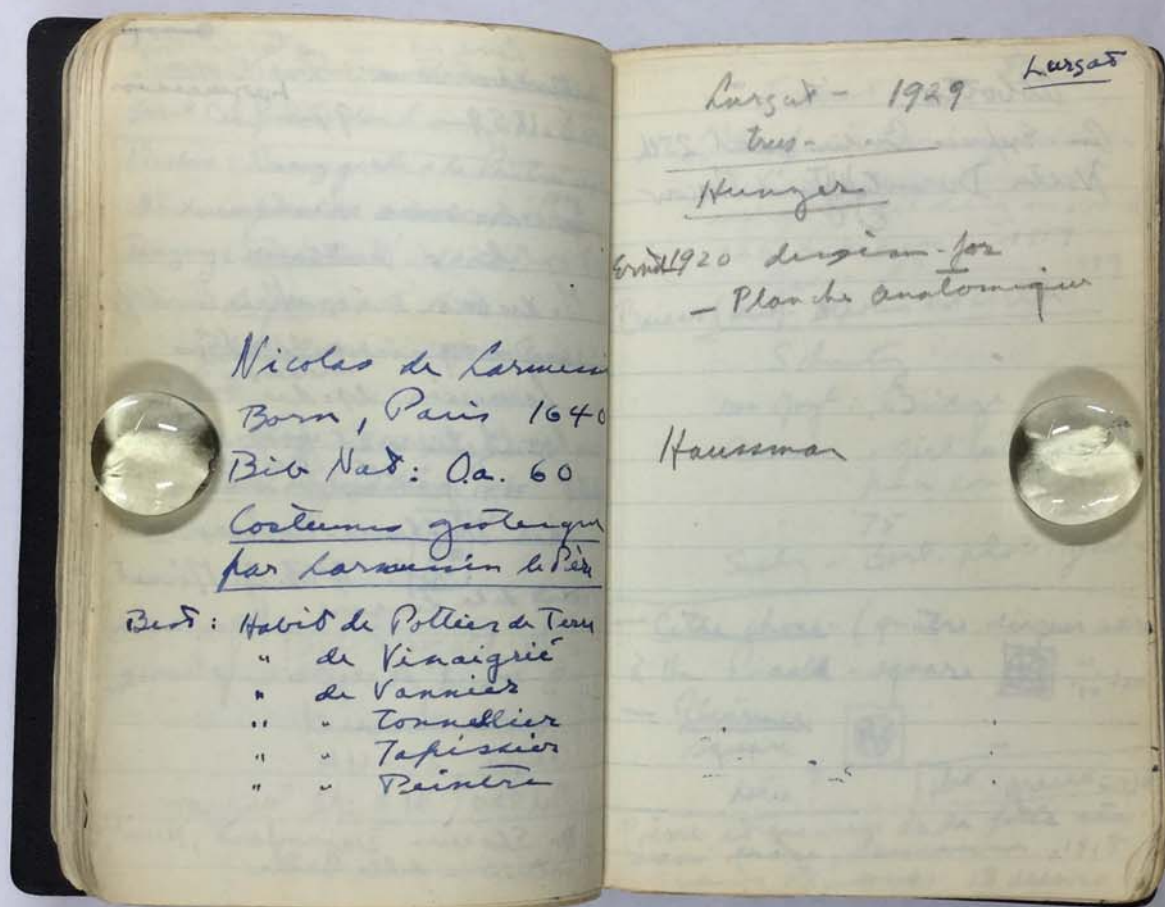 Nicolas de Larmessi
Born, Paris 1640
Bib Nat: Oa. 60
Costumes grotesque
par Larmessin le Père
Best: Habit de Pottier de Terre
" de Vinaigrié
" de Vannier
" " Tonnellier
" " Tapissier
" " Peintre
Lurçat
Lurçat - 1929
trees -
Hunger
1920 design - for
- Planche Anatomique
Haussman